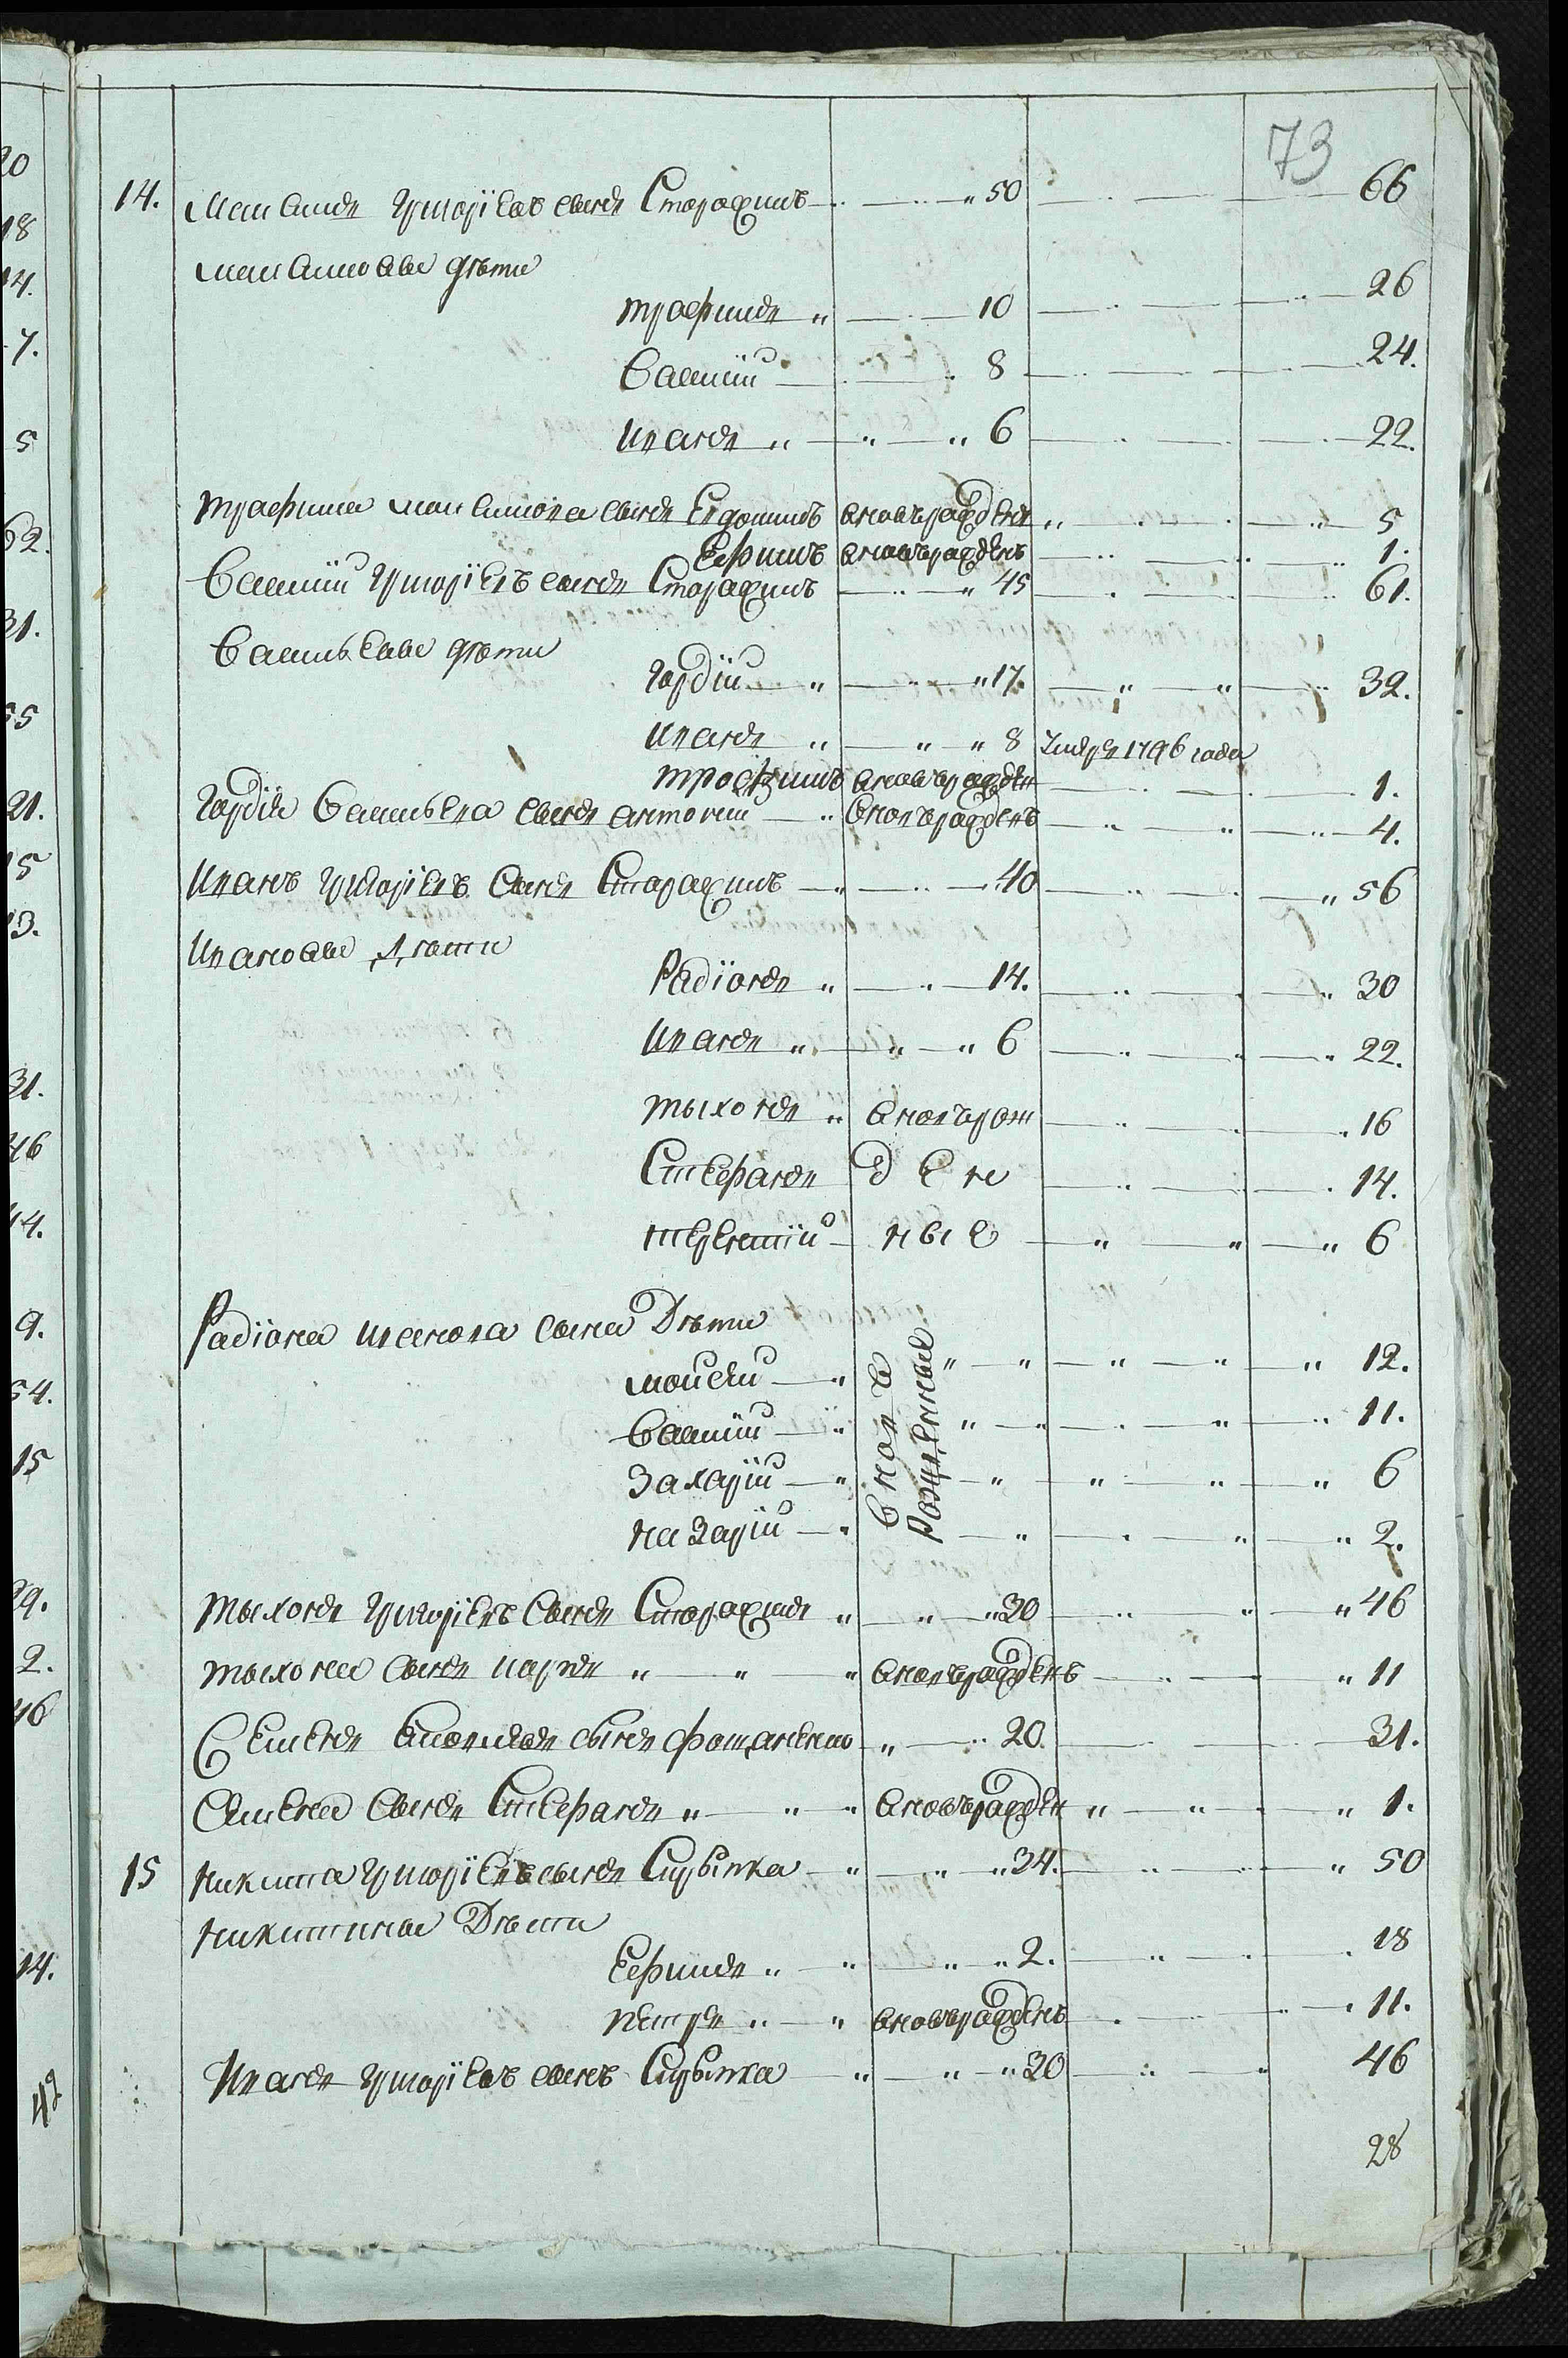 73
14. Максимъ Григоріевъ сынъ Сторожинъ 50 66
Максимовы дѣти
трафимъ 10 26
Василій 8 24.
Иванъ 6 22.
трафима максимова сынъ Евдокимъ вновьрожденъ 5
Ефимъ вновьрожденъ 1.
Василій Григоріевъ сынъ Сторожинъ 45 61.
Васильевы дѣти
Гордій 17. 32.
Иванъ 8 Умеръ 1796 года
трофимъ вновьрожден 1.
Гордія Васильева сынъ антоній вновьрожденъ 4.
Иванъ Григоріевъ Сынъ Сторожинъ 40 56
Ивановы дѣти
Радіонъ 14. 30
Иванъ 6 22.
тыхонъ вновьрож 16
Стефанъ д е н 14.
терентій ные 6
Радіона иванова сына Дѣти
мойсей вновь рожденные 12.
Василій 11.
Захарій 6
назарій 2.
тыхонъ Григоріевъ Сынъ Сторожинъ 30 46
тыхона Сынъ карпъ вновьрожденъ 11
Семенъ сынъ 20. 31.
Семена Сынъ Стефанъ вновьрожден 1.
15 Никита Григоріевъ сынъ 34. 50
Никитины Дѣти
Ефимъ 2. 18
петръ вновьрожденъ 11.
Иванъ Григоріевъ сынъ 30 46
28
20
18
14.
7.
5
62.
31.
55
21.
15
13.
31.
46
14.
9.
54.
15
29.
2.
46
14.
42